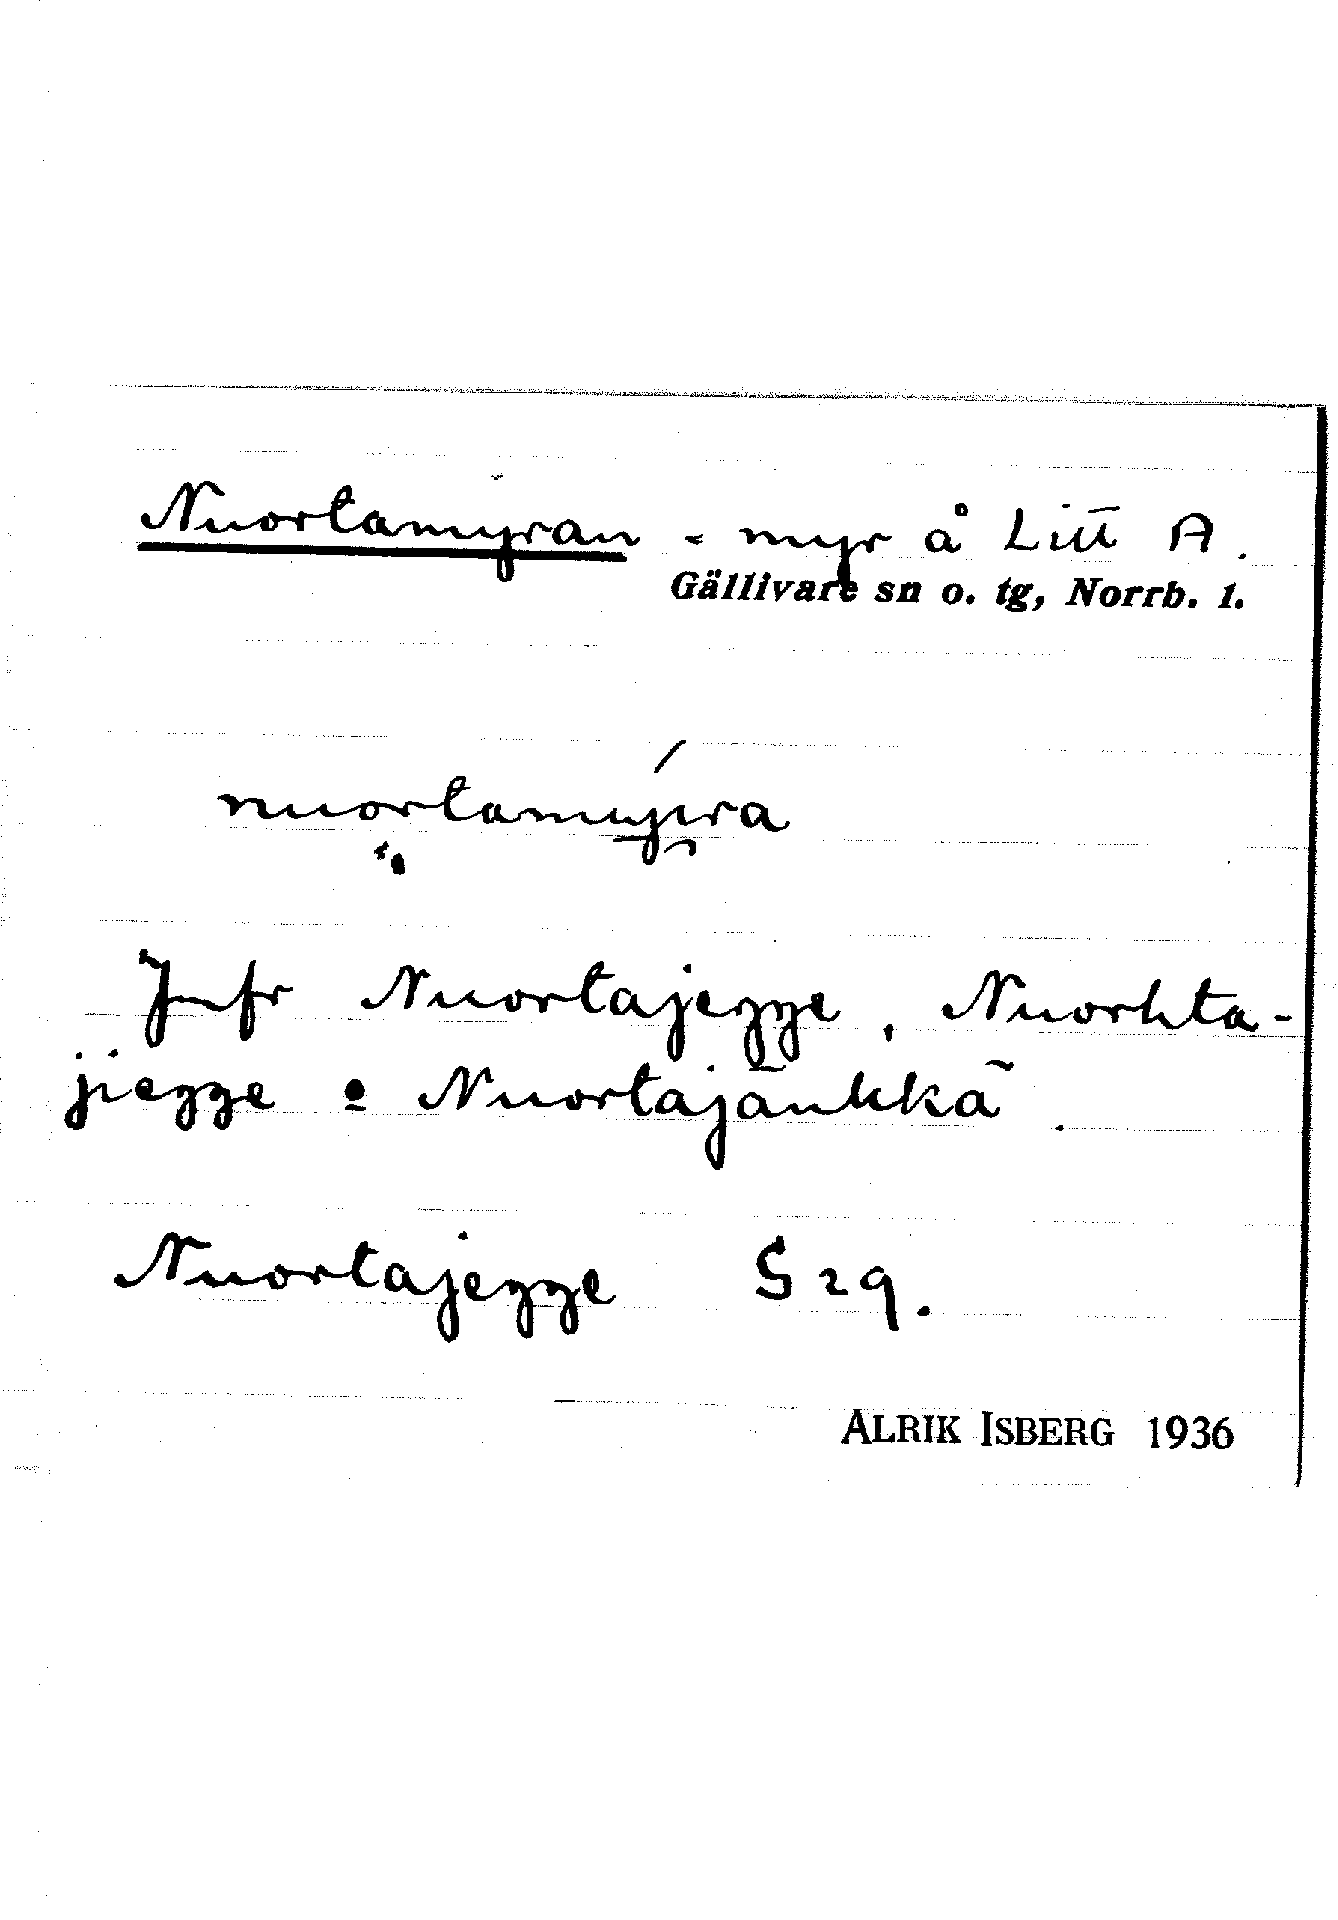 Nuortamyran - myr å Litt A.
Gällivare sn o. tg, Norrb. l.
nuortamyira
Jmfr Nuortajegge, Nuorhta-
jiegge o Nuortajänkkä.
Nuortajegge S 29.
ALRIK ISBERG 1936